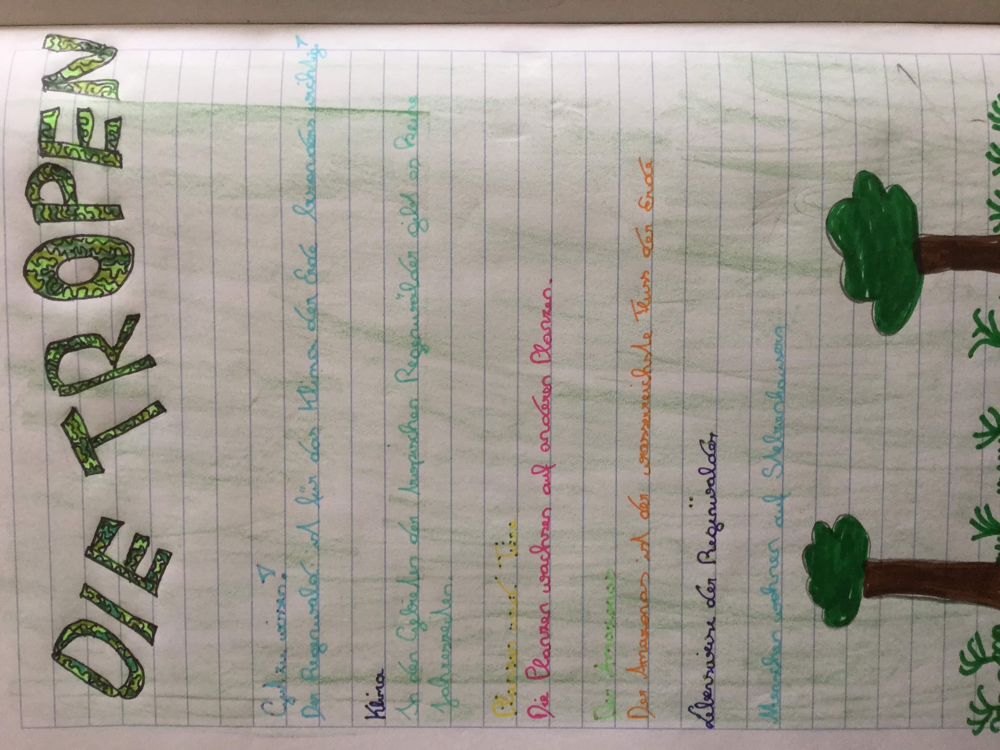 DIE TROPEN
wissen?
Der Regenwald ist für das Klima der Erde besonders wichtig?
Klima
In den Gebieten der tropischen Regenwälder gibt es keine
Jahreszeiten.
Die Planzen wachsen auf anderen Planzen.
Der Amazonas
Der Amazonas ist der wasserreichste Fluss der Erde
Lebensweise der Regenwälder
Menschen wohnen auf